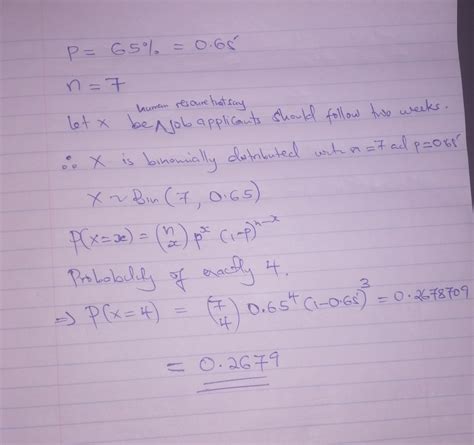 P = 65% = 0.65
n = 7
human resource
let x be job applicants should follow two weeks.
∴ X is binomially distributed with n=7 ad p=0.65
X ~ Bin (7, 0.65)
P(X=x) = (n x) p^x (1-p)^n-x
Probability of exactly 4.
⇒ P(X=4) = (7 4) 0.65^4 (1-0.65)^3 = 0.2678709
= 0.2679